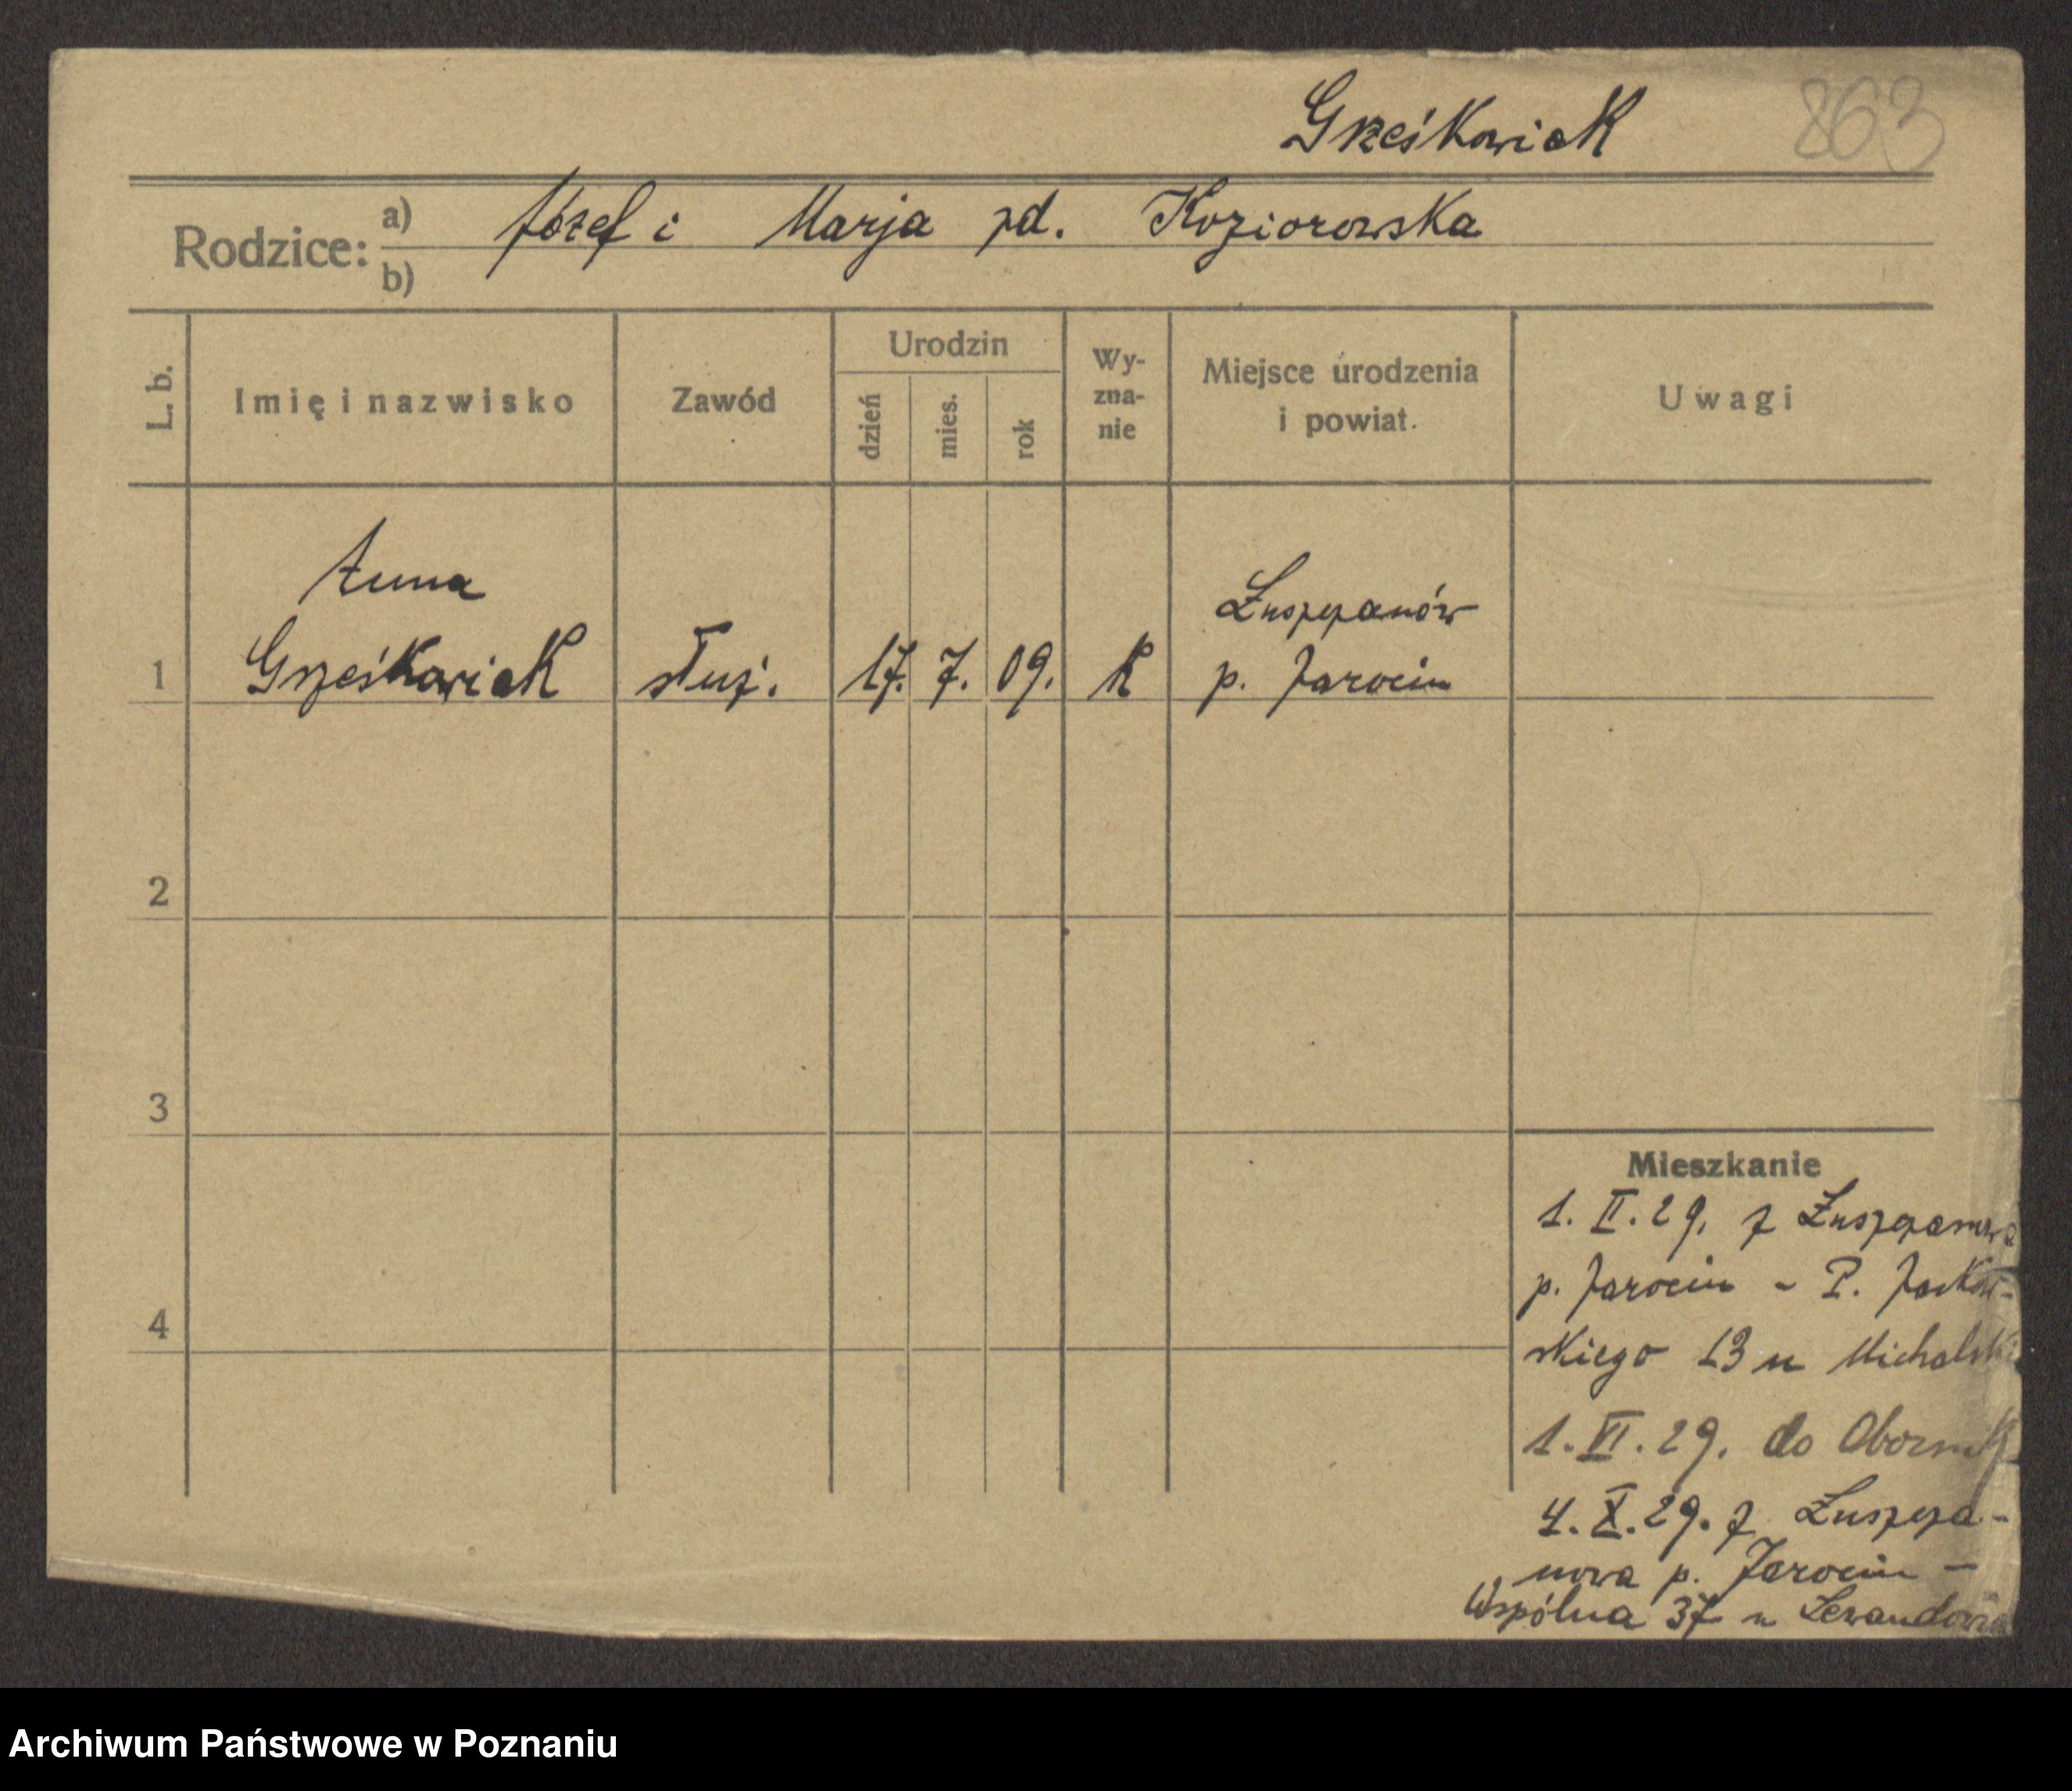 Grześkowiak 863
Rodzice: a) Józef i Marja zd. Koziorowska
b)
L. b. Imię i nazwisko Zawód Urodzin dzień mies. rok Wy-zna-nie Miejsce urodzenia i powiat. Uwagi
Anna
Łuszczanów
1 Grześkowiak służ. 17. 7. 09. K p. Jarocin
2
3
Mieszkanie
1. II. 29. z Łuszczanowa
p. Jarocin - P. Jackow-
4
skiego 13 u Michalski
1. VI. 29. do Obornik
4. X. 29. z Łuszcza-
nowa p. Jarocin -
Wspólna 37 u
Archiwum Państwowe w Poznaniu